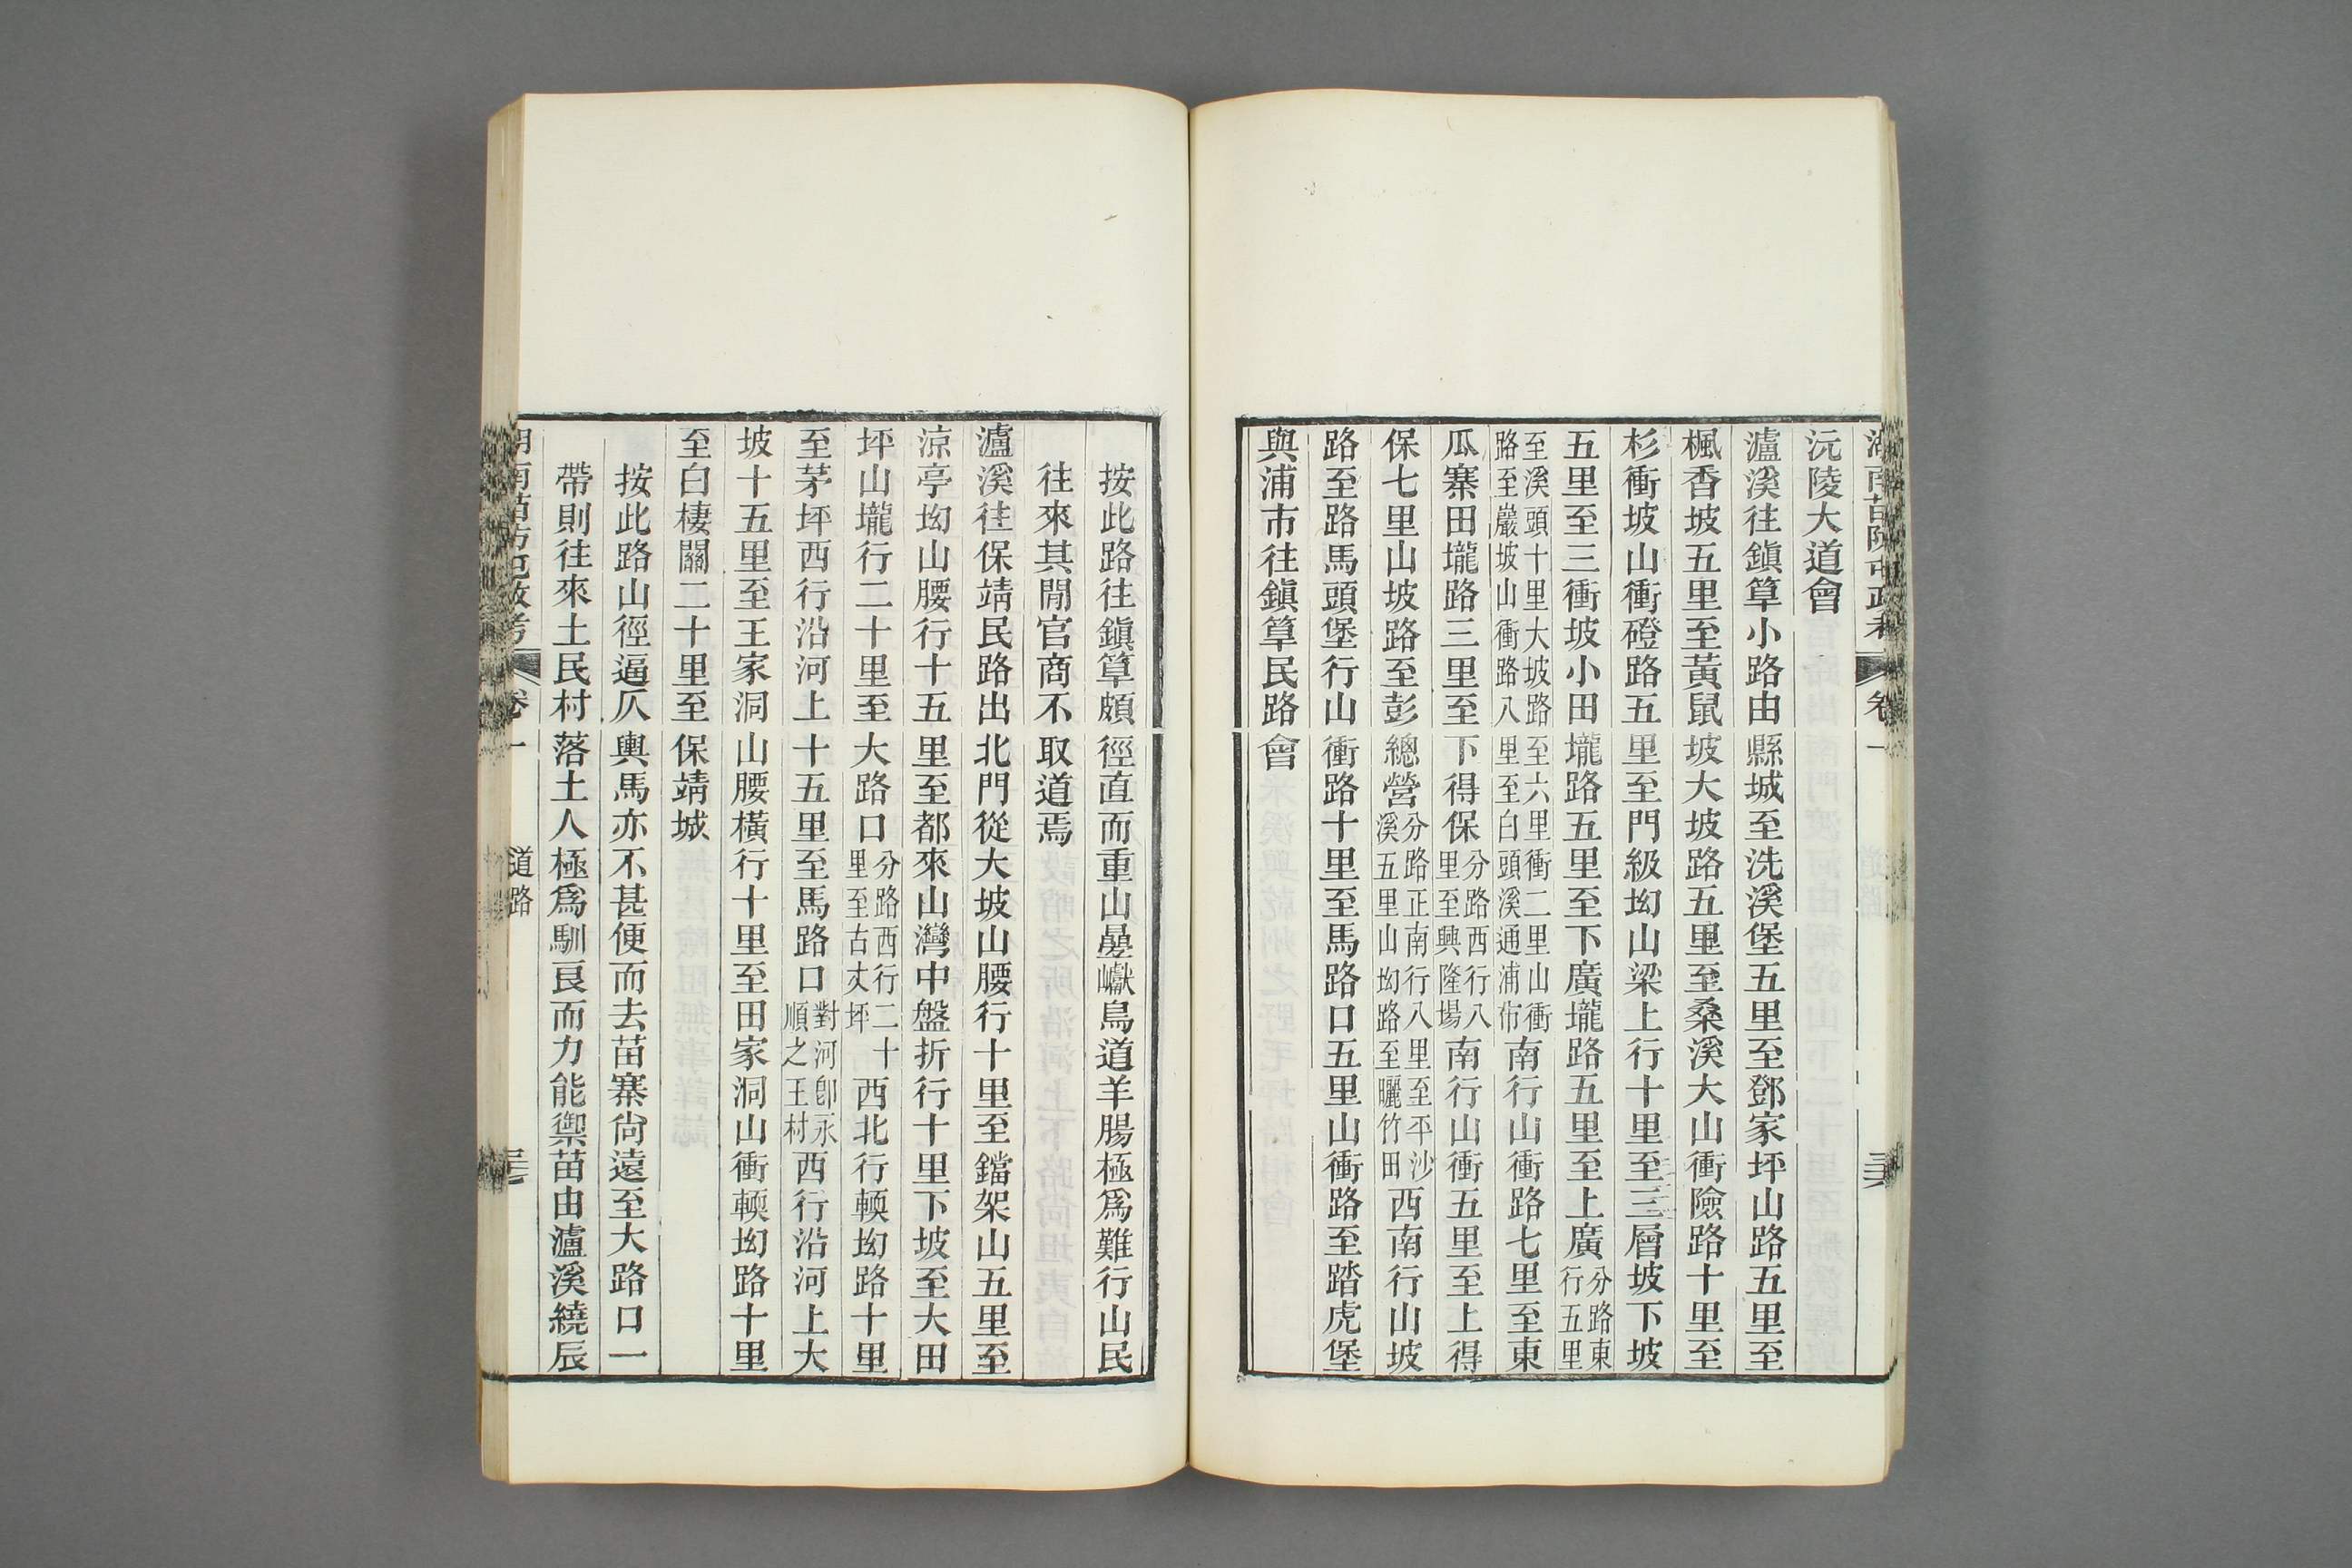 湖南苗防屯政考 卷一 道路 三六
沅陵大道會
瀘溪往鎭筸小路由縣城至洗溪堡五里至鄧家坪山路五里至
楓香坡五里至黃鼠坡大坡路五里至桑溪大山衝險路十里至
杉衝坡山衝磴路五里至門級坳山梁上行十里至三層坡下坡
五里至三衝坡小田壠路五里至下廣壠路五里至上廣分路東行五里
至溪頭十里大坡路至六里衝二里山衝路至巖坡山衝路八里至白頭溪通浦市南行山衝路七里至東
瓜寨田壠路三里至下得保分路西行八里至興隆場南行山衝五里至上得
保七里山坡路至彭總營分路正南行八里至平沙溪五里山坳路至曬竹田西南行山坡
路至路馬頭堡行山衝路十里至馬路口五里山衝路至踏虎堡
與浦市往鎭筸民路會
按此路往鎭筸頗徑直而重山㬪巘鳥道羊腸極爲難行山民
往來其閒官商不取道焉
瀘溪往保靖民路出北門從大坡山腰行十里至鐺架山五里至
涼亭坳山腰行十五里至都來山灣中盤折行十里下坡至大田
坪山壠行二十里至大路口分路西行二十里至古𠀋坪西北行輭坳路十里
至茅坪西行沿河上十五里至馬路口對河卽永順之王村西行沿河上大
坡十五里至王家洞山腰橫行十里至田家洞山衝輭坳路十里
至白棲關二十里至保靖城
按此路山徑逼仄輿馬亦不甚便而去苗寨尙遠至大路口一
帶則往來土民村落土人極爲馴良而力能禦苗由瀘溪繞辰
湖南苗防屯政考 卷一 道路 三七